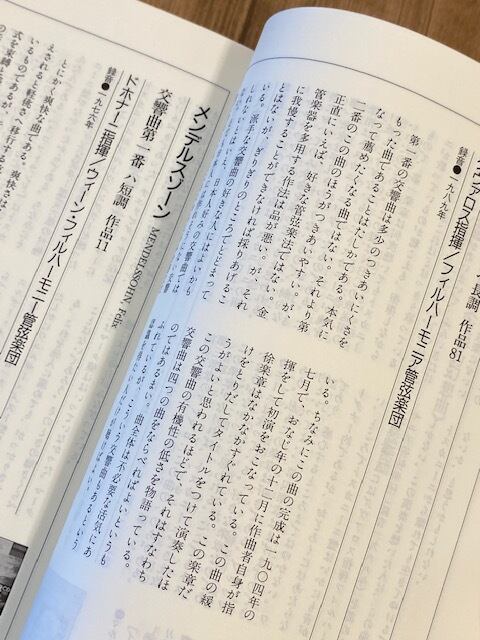 長調 作品81
アロス指揮/フィルハーモニア管弦楽団
録音●一九八九年
第一番の交響曲は多少のつきあいにくさを
もった曲であることはたしかである。本気に
なって薦めたくなる曲ではない。それより第
二番のこの曲のほうがつきあいやすい。が、
正直にいえば、好きな管弦楽法ではない。金
管楽器を多用する作法は品が悪い。が、それ
に我慢することができなければ採りあげるこ
とはないが、ぎりぎりのところでとどまって
いる。派手な交響曲の好きな人にはよいかも
しれない
いる。ちなみにこの曲の完成は一九〇四年の
七月で、おなじ年の十二月に作曲者自身が指
揮をして初演をおこなっている。この曲の緩
徐楽章はなかなかすぐれている。この楽章だ
けをとりだしてタイトルをつけて演奏したほ
うがよいと思われるほどで、それはすなわち
この交響曲の有機性の低さを物語っている。
交響曲は四つの曲をならべればよいというも
のではあるまい。曲全体は不必要な活気にあ
ふれているが、こういう交響曲もあるという
メンデルスゾーン MENDELSSOHN Felix
交響曲第一番 ハ短調 作品11
ドホナーニ指揮/ウィーン・フィルハーモニー管弦楽団
録音●一九七六年
とにかく爽快な曲である。爽快